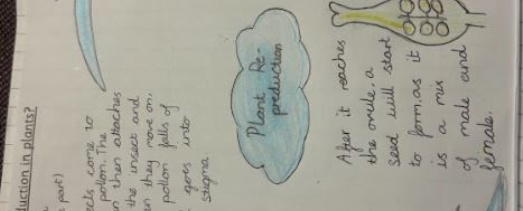 duction in plants?
part)
cts come to
pollon. The
n then attaches
the insect and
en they move on,
pollon falls of
goes into
stigma
Plant Re-
production
After it reaches
the ovule, a
seed will start
to form, as it
is a mix
of male and
female.